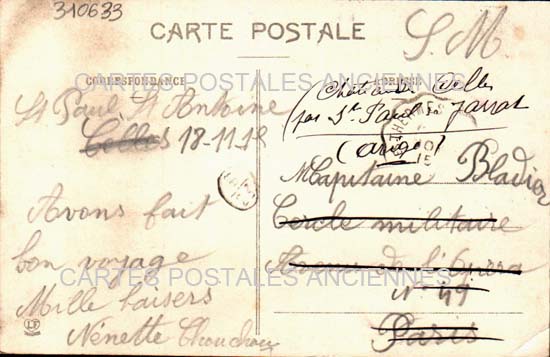 310633
CARTE POSTALE
S M
CORRESPONDANCE
ADRESSE
CARTES POSTALES ANCIENNES
St Paul St Antoine
Celles 18-11-15
Avons fait
bon voyage
Mille baisers
Nénette Chouchou
Château de Celles
par St Paul de Jarrat
(Ariège)
M Capitaine Bladier
Cercle militaire
Avenue de l'Opéra
N° 49
Paris
CARTES POSTALES ANCIENNES
LF